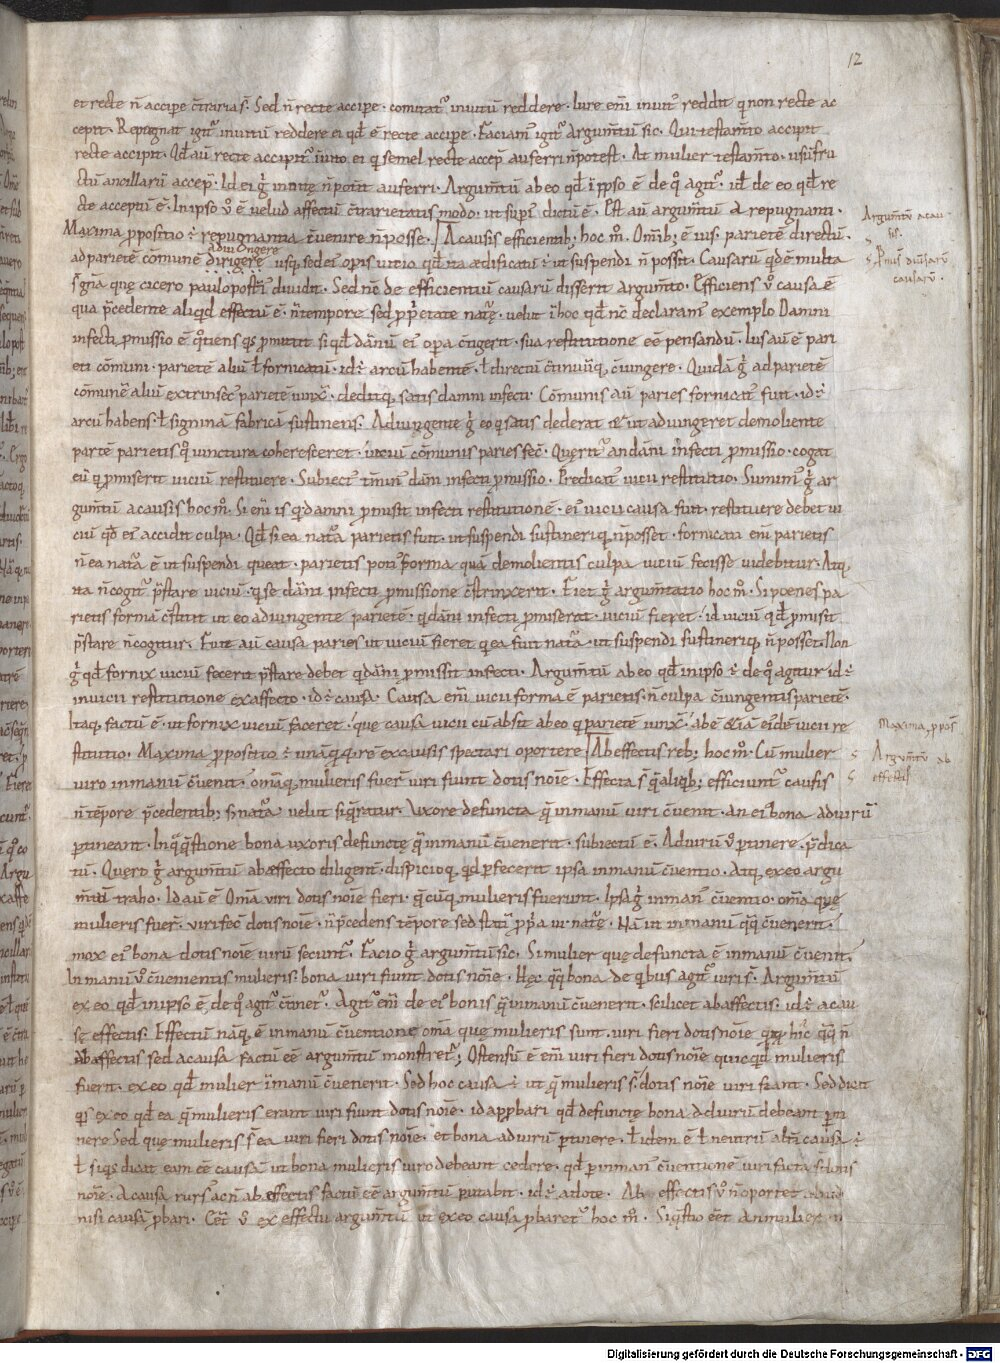 12
et recte n̄ accipe c̄traria s̄. Sed n̄ recte accipe. comitat᷑ inuitū reddere. Iure eni inuit᷑ reddit q non recte ac
cepit. Repugnat igit᷑ inuitū reddere ei qd̄ ē recte accipe. Faciam᷑ igit᷑ argumtū sic. Qui testamto accipit
recte accipit. Qd̄ aū recte accipit᷑ inuito ei q semel recte accep auferri n̄ potest. At mulier testamto. usūfru
ctū ancillarū accep. Id ei g̊ inuitę n̄ potit auferri. Argumtū ab eo qd̄ i ipso ē de q̊ agit᷑. id̄ de eo qd̄ re
cte acceptū ē. In ipso ů ē velud affectū c̄trarietatis modo. ut supi dictū ē. Est aū argumtū & repugnanti.
Maxima ppositio ÷ repugnantia c̄uenire n̄ posse. A causis efficientib; hoc m̊. Omib; ē ius. parietē directū.
ad parietē comune dirigere usq; sed ei᷑ opis uitio qd̄ ita ædificatū ÷ ut suspendi n̄ possit. Causarū qdē multa
adiungere
s̄ gna quę cicero paulo post diuidit. Sed nc̄ de efficientiū causarū disserit argumto. Efficiens ů causa ē
qua p̄cedente aliqd effectū ē. n̄ tempore sed pp̄etate natᷓę. velut i hoc qd̄ nc̄ declaram᷑ exemplo Damni
infecti pmissio ē q̊tiens qs pmittit si qd̄ dānū ei᷑ opa c̄tigerit. sua restitutione eē pensandū. Ius aū ē pari
eti comuni. parietē aliū ł fornicatū. id÷ arcū habentē. ł directū c̄tinuūq; c̄iungere. Quidā g̊ ad parietē
comunē aliū extrinsec᷑ parietē iunx᷑. deditq; satis damni infecti. Comunis aū paries fornicat᷑ fuit. id÷
arcū habens. ł signina fabrica sustinens. Adiungente g̊ eo q satis dederat ut adiungeret demoliente
partē parietis q̊ iunctura coheresceret. uiciū comunis paries fec. Querit᷑ an dāni infecti pmissio. cogat
eū q pmiserit uiciū restituere. Subiect᷑ tmin᷑ dāni infecti pmissio. Predicat᷑ uicii restitutio. Sumim᷑ g̊ ar
gumtū a causis hoc m̊. Si eni is q damni pmisit infecti restitutionē. ei᷑ uicii causa fuit. restituere debet ui
ciū qd̄ ei᷑ accidit culpa. Qd̄ si ea natᷓa parietis fuit. ut suspendi sustineriq; n̄ posset. fornicati eni parietis
n̄ ea natᷓa ē ut suspendi queat. parietis poti᷑ forma quā demolientis culpa uiciū fecisse uidebitur. Atq;
ita n̄ cogit᷑ p̄stare uiciū. q se dāni infecti pmissione c̄strinxerit. Fiet g̊ argumtatio hoc m̊. Si poenes pa
rietis formā c̄stitit ut eo adiungente parietē. q dāni infecti pmiserat. uiciū fieret. id uiciū qd̄ pmisit
p̄stare n̄ cogitur. Fuit aū causa paries ut uiciū fieret q ea fuit natᷓa. ut suspendi sustineriq; n̄ posset. Non
g̊ qd̄ fornix uiciū fecerit p̄stare debet q dāni pmissit infecti. Argumtū ab eo qd̄ in ipso ÷ de q̊ agitur id÷
in uicii restitutione ex affecto. id÷ causa. Causa eni uicii forma ē parietis. n̄ culpa c̄iungentis parietē.
Itaq; factū ē. ut fornix uiciū faceret. que causa uicii cū absit ab eo q parietē iunx᷑. abē &iā ei᷑dē uicii re
stitutio. Maxima ppositio ÷ unāqᷓq; rē ex causis spectari oportere. Ab effectis reb; hoc m̊. Cū mulier
uiro in manū c̄uenit. omāq; mulieris fuer᷑ uiri fiunt dotis noīe. Effecta s̄ q aliqb; efficiunt᷑ causis
n̄ tēpore p̄cedentib; s; natᷓa. velut si q̄ratur. Uxore defuncta q in manū uiri c̄uenit. An ei bona ad uirū
ptineant. In q̄stione bona uxoris defunctę q in manū c̄uenerit. subiectū ē. Ad uirū ů ptinere. p̄dica
tū. Quero g̊ argumtū ab affecto diligent. dispicioq; qd pfecerit ipsa in manū c̄uentio. Atq; ex eo argu
mtū traho. Id aū ē Oma uiri dotis noīe fieri. q̄cūq; mulieris fuerunt. Ipsa g̊ in man᷑ c̄uentio. oma quę
mulieris fuer᷑. uiri fec dotis noīe. n̄ p̄cedens tēpore sed statī ppᷓa ui natᷓę. Nā ut in manū qq̄ c̄uenerit.
mox ei᷑ bona dotis noīe uirū secunt᷑. Facio g̊ argumtū sic. Si mulier quę defuncta ē in manū c̄uenit.
In manū ů c̄uenientis mulieris. bona uiri fiunt dotis noīe. Hęc qq̄ bona de qbus agit᷑ uiri s̄. Argumtū
ex eo qd̄ in ipso ē de q̊ agit᷑ c̄tinet᷑. Agit᷑ eni de ei᷑ bonis q in manū c̄uenerit. scilicet ab affectis. id÷ a cau
sę effectis. Effectū nāq; ē in manū c̄uentione oma quę mulieris sunt. uiri fieri dotis noīe hic qq̄ n̄
ab affectis sed a causa factū eē argumtū monstret᷑; Ostensū ē eni uiri fieri dotis noīe quicqd mulieris
fuerit. ex eo qd̄ mulier i manū c̄uenerit. Sed hoc causa ÷ ut q mulieris s̄. dotis noīe uiri fiant. Sed dicit
qs ex eo qd̄ ea q mulieris erant uiri fiunt dotis noīe. id app̄bari qd̄ defunctę bona ad uirū debeant pti
nere Sed quę mulieris s̄ ea uiri fieri dotis noīe. et bona ad uirū ptinere. ł idem ē ł neutrū altī causa ÷
ł siqs dicat eam eē causā ut bona mulieris uiro debeant cedere. qd̄ p in man᷑ c̄uentionē uiri facta s̄ dotis
noīe. A causa rurs᷑ ac n̄ ab effectis factū eē argumtū putabit. id÷ a dote. Ab effectis ů n̄ oportet aliud
nisi causā pbari. Cet ů ex effectu argumtū ut ex eo causa pbaret᷑ hoc m̊. Si q̄stio eēt an mulier n̄
Argumtū a cau
sis.
Prius diuisarū
causarū.
Maxima ppos
Argumtū ab
effectis
Digitalisierung gefördert durch die Deutsche Forschungsgemeinschaft - DFG